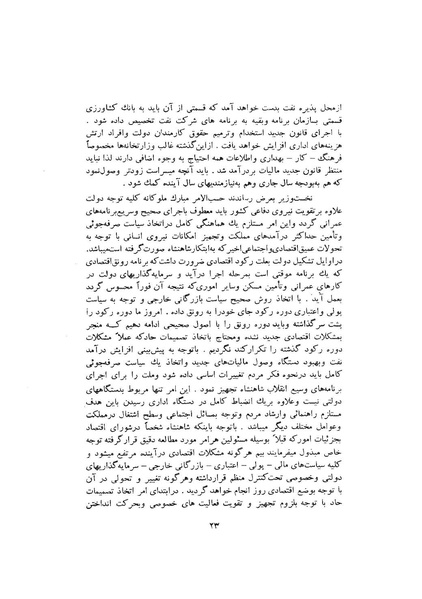 ازمحل پذیره نفت بدست خواهد آمد که قسمتی از آن باید به بانك کشاورزی
قسمتی بسازمان برنامه وبقیه به برنامه های شرکت نفت تخصیص داده شود .
با اجرای قانون جدید استخدام وترمیم حقوق کارمندان دولت وافراد ارتش
هزینه‌های اداری افزایش خواهد یافت . ازاین‌گذشته غالب وزارتخانه‌ها مخصوصاً
فرهنگ – کار – بهداری واطلاعات همه احتیاج به وجوه اضافی دارند لذا نباید
منتظر قانون جدید مالیات بردرآمد شد . باید آنچه میسر‌است زودتر وصول‌نمود
که هم به‌بودجه سال جاری وهم به‌نیازمندیهای سال آینده کمك شود .
نخست‌وزیر بعرض رساندند حسب‌الامر مبارك ملوکانه کلیه توجه دولت
علاوه برتقویت نیروی دفاعی کشور باید معطوف باجرای صحیح وسریع‌برنامه‌های
عمرانی گردد واین امر مستلزم یك هماهنگی کامل دراتخاذ سیاست صرفه‌جوئی
وتأمین حداکثر درآمدهای مملکت وتجهیز امکانات نیروی انسانی با توجه به
تحولات عمیق‌اقتصادی‌واجتماعی‌اخیرکه بابتکارشاهنشاه صورت‌گرفته است‌میباشد.
دراوایل تشکیل دولت بعلت رکود اقتصادی ضرورت داشت‌که برنامه رونق‌اقتصادی
که یك برنامه موقتی است بمرحله اجرا درآید و سرمایه‌گذاریهای دولت در
کارهای عمرانی وتأمین مسکن وسایر اموری‌که نتیجه آن فوراً محسوس گردد
بعمل آید . با اتخاذ روش صحیح سیاست بازرگانی خارجی و توجه به سیاست
پولی واعتباری دوره رکود جای خودرا به رونق داده . امروز ما دوره رکود را
پشت سرگذاشته وباید دوره رونق را با اصول صحیحی ادامه دهیم کــه منجر
بمشکلات اقتصادی جدید نشده ومحتاج باتخاذ تصمیمات حادکه عملاً مشکلات
دوره رکود گذشته را تکرارکند نگردیم . باتوجه به پیش‌بینی افزایش درآمد
نفت وبهبود دستگاه وصول مالیات‌های جدید واتخاذ یك سیاست صرفه‌جوئی
کامل باید درنحوه فکر مردم تغییرات اساسی داده شود وملت را برای اجرای
برنامه‌های وسیع انقلاب شاهنشاه تجهیز نمود . این امر تنها مربوط بدستگاههای
دولتی نیست وعلاوه بریك انضباط کامل در دستگاه اداری رسیدن باین هدف
مستلزم راهنمائی وارشاد مردم وتوجه بمسائل اجتماعی وسطح اشتغال درمملکت
وعوامل مختلف دیگر میباشد . باتوجه باینکه شاهنشاه شخصاً درشورای اقتصاد
بجزئیات امورکه قبلاً بوسیله مسئولین هرامر مورد مطالعه دقیق قرارگرفته توجه
خاص مبذول میفرمایند بیم هرگونه مشکلات اقتصادی درآینده مرتفع میشود و
کلیه سیاست‌های مالی – پولی – اعتباری – بازرگانی خارجی – سرمایه‌گذاریهای
دولتی وخصوصی تحت‌کنترل منظم قرارداشته وهرگونه تغییر و تحولی در آن
با توجه بوضع اقتصادی روز انجام خواهد گردید . درابتدای امر اتخاذ تصمیمات
حاد با توجه بلزوم تجهیز و تقویت فعالیت های خصوصی وبحرکت انداختن
۲۳